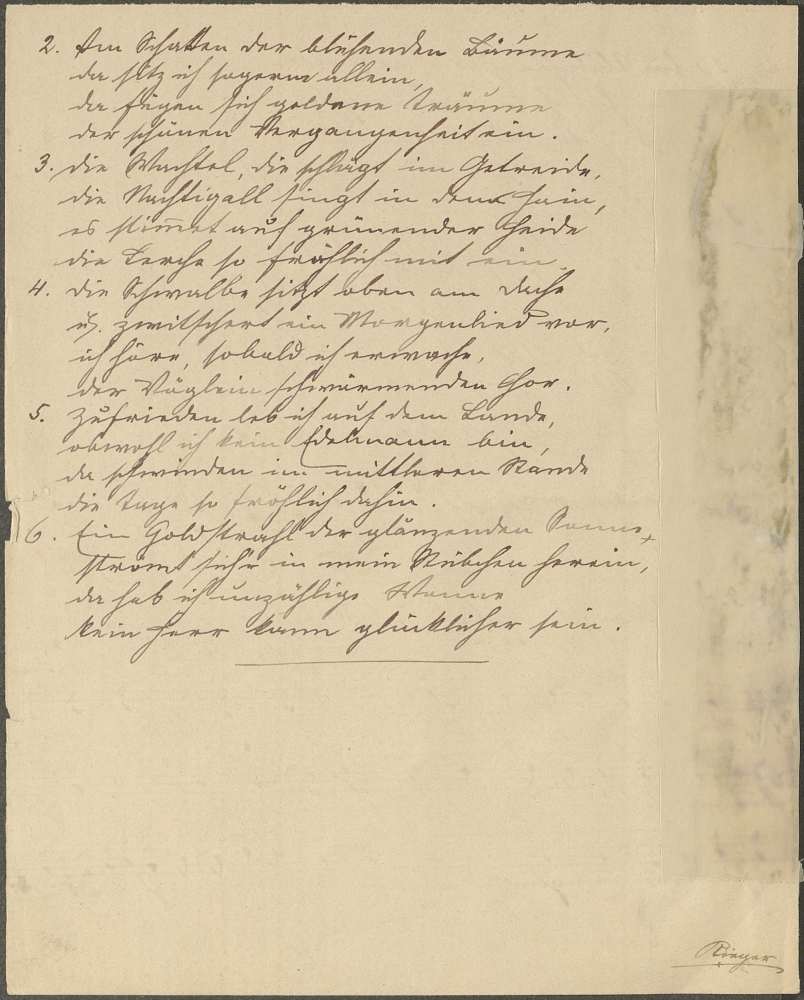 2. Im Schatten der blühenden Bäume
da sitz ich sogerne allein,
da fügen sich goldene Träume
der schönen Vergangenheit ein.
3. die Wachtel, die schlägt im Getreide,
die Nachtigall singt in dem Hain,
es stimmet auf grünender Heide
die Lerche so fröhlich mit ein
4. die Schwalbe sitzt oben am Dache
u. zwitschert ein Morgenlied vor,
ich höre, sobald ich erwache,
der Vöglein schwärmenden Chor.
5. Zufrieden leb ich auf dem Lande,
obwohl ich kein Edelmann bin,
da schwinden im mittleren Stande
die Tage so fröhlich dahin.
6. Ein Goldstrahl der glänzenden Sonne,
strömt sich in mein Stübchen herein,
da hab ich unzählige Wonne
kein Herr kann glücklicher sein.
Rieger